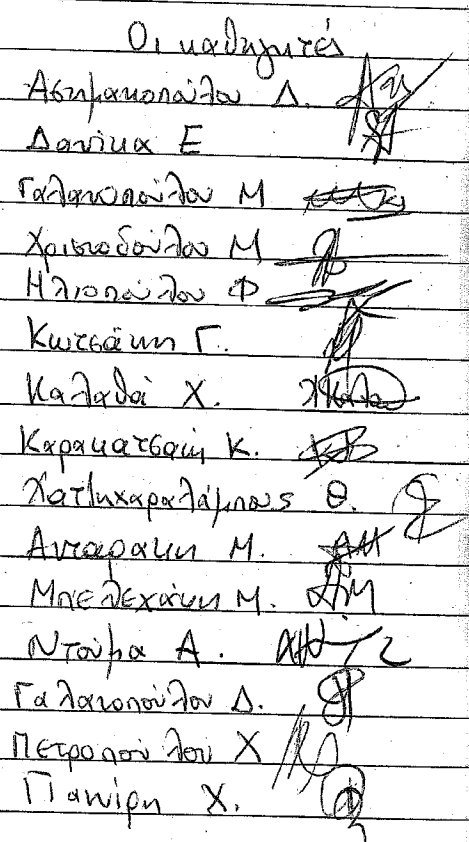 Οι καθηγητές
Ασημακοπούλου Δ.
Δανίκα Ε
Γαλανοπούλου Μ
Χριστοδούλου Μ
Ηλιοπούλου Φ
Κωτσάκη Γ.
Καλαθά Χ.
Καρακατσάνη Κ.
Χατζηχαραλάμπους Θ.
Ανταράκη Μ.
Μπελεχάκη Μ.
Ντούμα Α.
Γαλανοπούλου Δ.
Πετροπούλου Χ
Χ.